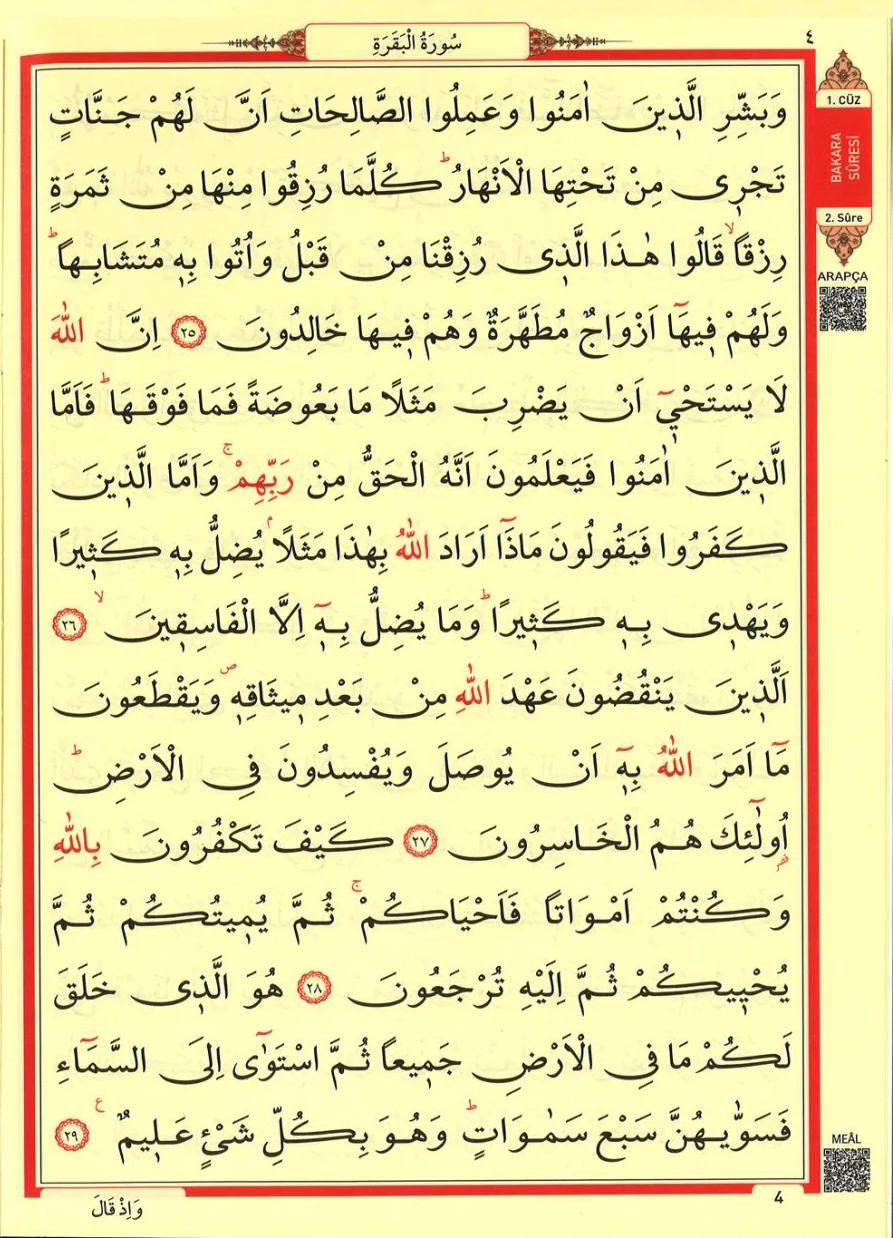 سُورَةُ الْبَقَرَةِ
٤
1. CÜZ
BAKARA
SÛRESİ
2. Sûre
ARAPÇA
وَبَشِّرِ الَّذ۪ينَ اٰمَنُوا وَعَمِلُوا الصَّالِحَاتِ اَنَّ لَهُمْ جَنَّاتٍ
تَجْر۪ى مِنْ تَحْتِهَا الْاَنْهَارُۜ كُلَّمَا رُزِقُوا مِنْهَا مِنْ ثَمَرَةٍ
رِزْقاًۙ قَالُوا هٰذَا الَّذ۪ى رُزِقْنَا مِنْ قَبْلُ وَاُتُوا بِه۪ مُتَشَابِهاًۜ
وَلَهُمْ ف۪يهَٓا اَزْوَاجٌ مُطَهَّرَةٌ وَهُمْ ف۪يهَا خَالِدُونَ ﴿٢٥﴾ اِنَّ اللّٰهَ
لَا يَسْتَحْي۪ٓ اَنْ يَضْرِبَ مَثَلًا مَا بَعُوضَةً فَمَا فَوْقَهَاۜ فَاَمَّا
الَّذ۪ينَ اٰمَنُوا فَيَعْلَمُونَ اَنَّهُ الْحَقُّ مِنْ رَبِّهِمْۚ وَاَمَّا الَّذ۪ينَ
كَفَرُوا فَيَقُولُونَ مَاذَٓا اَرَادَ اللّٰهُ بِهٰذَا مَثَلًاۢ يُضِلُّ بِه۪ كَث۪يرًا
وَيَهْد۪ى بِه۪ كَث۪يرًاۜ وَمَا يُضِلُّ بِه۪ٓ اِلَّا الْفَاسِق۪ينَۙ ﴿٢٦﴾
اَلَّذ۪ينَ يَنْقُضُونَ عَهْدَ اللّٰهِ مِنْ بَعْدِ م۪يثَاقِه۪ۖ وَيَقْطَعُونَ
مَٓا اَمَرَ اللّٰهُ بِه۪ٓ اَنْ يُوصَلَ وَيُفْسِدُونَ فِى الْاَرْضِۜ
اُولٰٓئِكَ هُمُ الْخَاسِرُونَ ﴿٢٧﴾ كَيْفَ تَكْفُرُونَ بِاللّٰهِ
وَكُنْتُمْ اَمْوَاتاً فَاَحْيَاكُمْۚ ثُمَّ يُم۪يتُكُمْ ثُمَّ
يُحْي۪يكُمْ ثُمَّ اِلَيْهِ تُرْجَعُونَ ﴿٢٨﴾ هُوَ الَّذ۪ى خَلَقَ
لَكُمْ مَا فِى الْاَرْضِ جَم۪يعاً ثُمَّ اسْتَوٰٓى اِلَى السَّمَٓاءِ
فَسَوّٰيهُنَّ سَبْعَ سَمٰوَاتٍۜ وَهُوَ بِكُلِّ شَيْئٍ عَل۪يمٌ ﴿٢٩﴾
MEÂL
4
وَاِذْ قَالَ